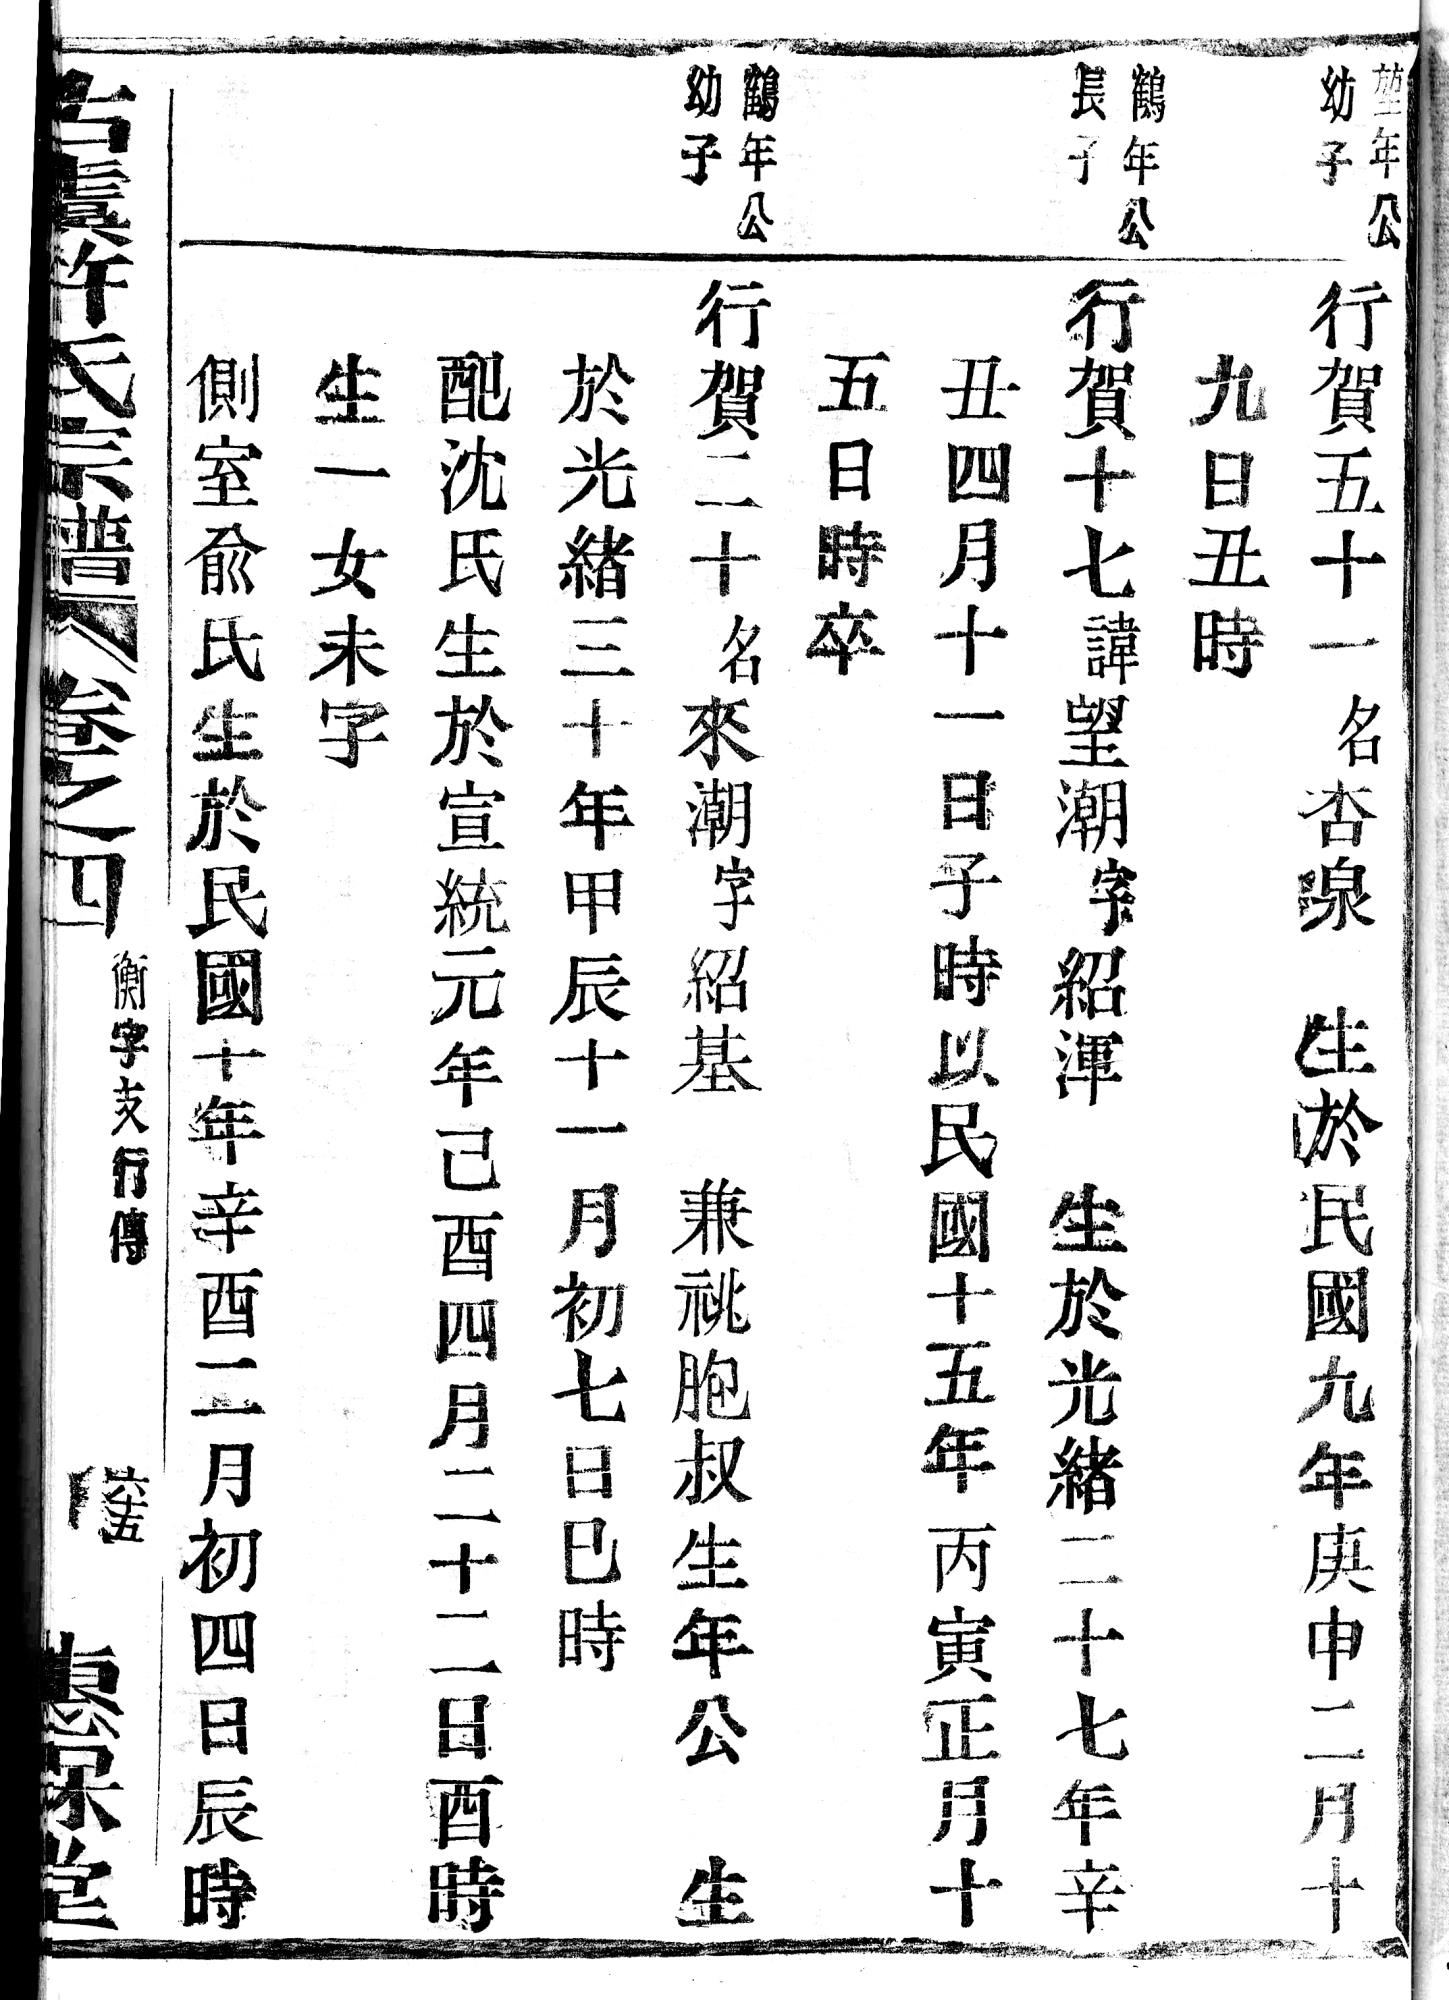 堃年公
幼子
行賀五十一名杏泉 生於民國九年庚申二月十
九日丑時
鶴年公
長子
行賀十七諱望潮字紹渾 生於光緒二十七年辛
丑四月十一日子時以民國十五年丙寅正月十
五日時卒
鶴年公
幼子
行賀二十名來潮字紹基 兼祧胞叔生年公 生
於光緒三十年甲辰十一月初七日巳時
配沈氏生於宣統元年己酉四月二十二日酉時
生一女未字
側室兪氏生於民國十年辛酉二月初四日辰時
古虞許氏宗譜 卷之四 衡字支行傳 六十五 惠保堂